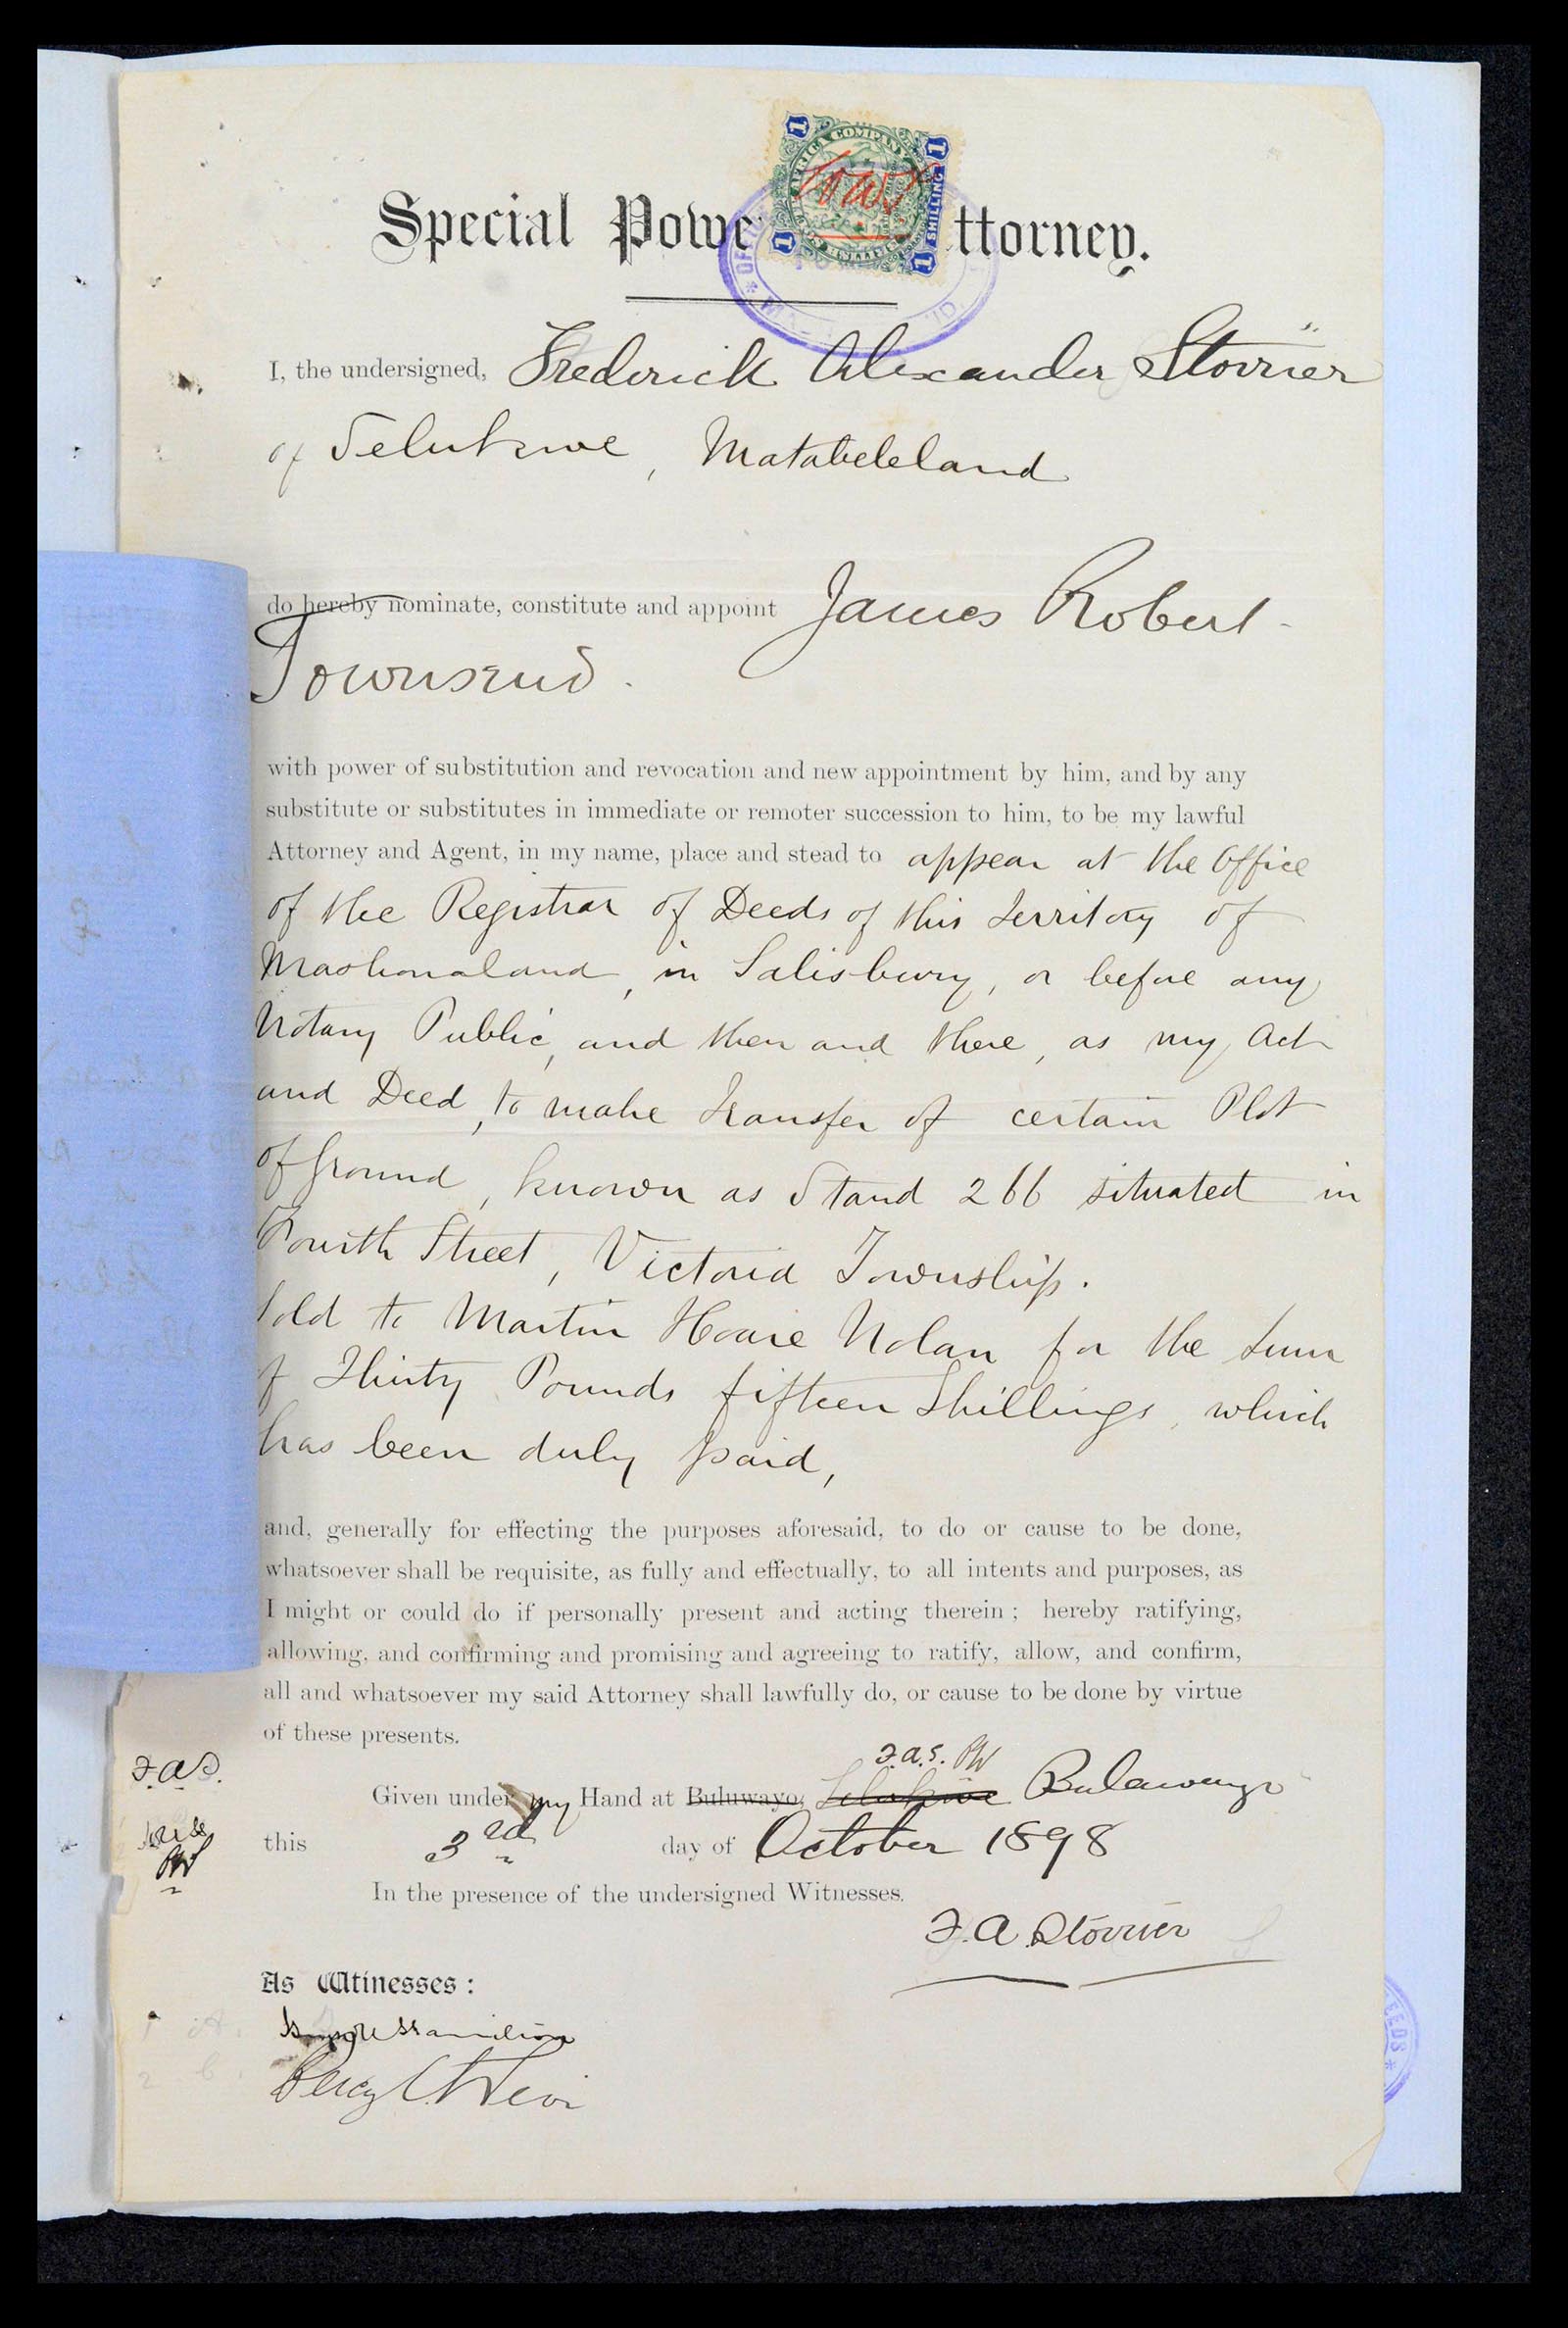 1 1
AFRICA COMPANY
SHILLING
1 1
Special Powe ttorney.
I, the undersigned, Frederick Alexander Storrier
of Selukwe, Matabeleland
do hereby nominate, constitute and appoint James Robert
Townsend.
with power of substitution and revocation and new appointment by him, and by any
substitute or substitutes in immediate or remoter succession to him, to be my lawful
Attorney and Agent, in my name, place and stead to appear at the Office
of the Registrar of Deeds of this Territory of
Mashonaland, in Salisbury, or before any
Notary Public, and then and there, as my Act
and Deed, to make Transfer of certain Plot
of Ground, known as Stand 266 situated in
Fourth Street, Victoria Township.
Sold to Martin Hoare Nolan for the Sum
of Thirty Pounds fifteen Shillings, which
has been duly paid,
and, generally for effecting the purposes aforesaid, to do or cause to be done,
whatsoever shall be requisite, as fully and effectually, to all intents and purposes, as
I might or could do if personally present and acting therein ; hereby ratifying,
allowing, and confirming and promising and agreeing to ratify, allow, and confirm,
all and whatsoever my said Attorney shall lawfully do, or cause to be done by virtue
of these presents.
F.A.S.
F.A.S. PW
Given under my Hand at Buluwayo, Selukwe Bulawayo
this 3rd day of October 1898
In the presence of the undersigned Witnesses.
F.A. Storrier
As Witinesses :
Percy
EEDS